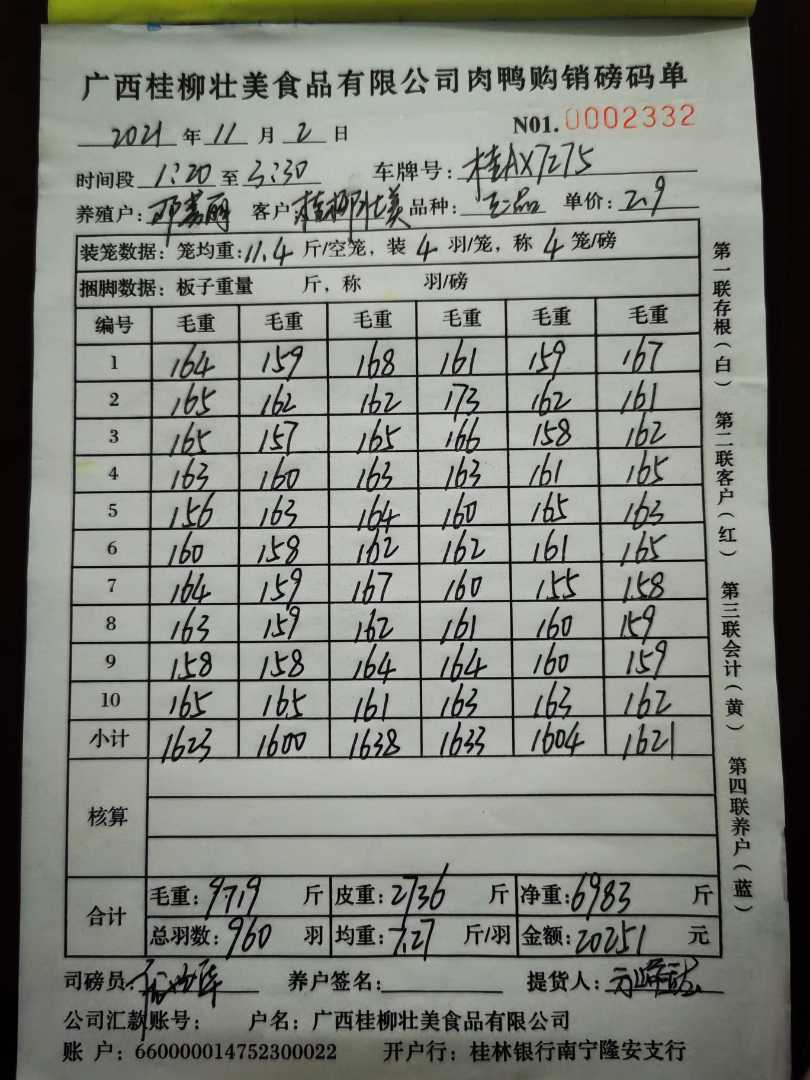 广西桂柳壮美食品有限公司肉鸭购销磅码单
2021 年 11 月 2 日 N01. 0002332
时间段 1:20 至 3:30 车牌号: 桂AX7275
养殖户: 邓美丽 客户: 桂柳壮美 品种: 三品 单价: 2.9
装笼数据: 笼均重: 11.4 斤/空笼, 装 4 羽/笼, 称 4 笼/磅
捆脚数据: 板子重量 斤, 称 羽/磅
编号 毛重 毛重 毛重 毛重 毛重 毛重
1 164 159 168 161 159 167
2 165 162 162 173 162 161
3 165 157 165 166 158 162
4 163 160 163 163 161 165
5 156 163 164 160 165 163
6 160 158 162 162 161 165
7 164 159 167 160 155 158
8 163 159 162 161 160 159
9 158 158 164 164 160 159
10 165 165 161 163 163 162
小计 1623 1600 1638 1633 1604 1621
核算
合计
毛重: 9719 斤 皮重: 2736 斤 净重: 6983 斤
总羽数: 960 羽 均重: 7.27 斤/羽 金额: 20251 元
司磅员: 养户签名: 提货人:
公司汇款账号: 户名: 广西桂柳壮美食品有限公司
账 户: 660000014752300022 开户行: 桂林银行南宁隆安支行
第一联存根(白) 第二联客户(红) 第三联会计(黄) 第四联养户(蓝)